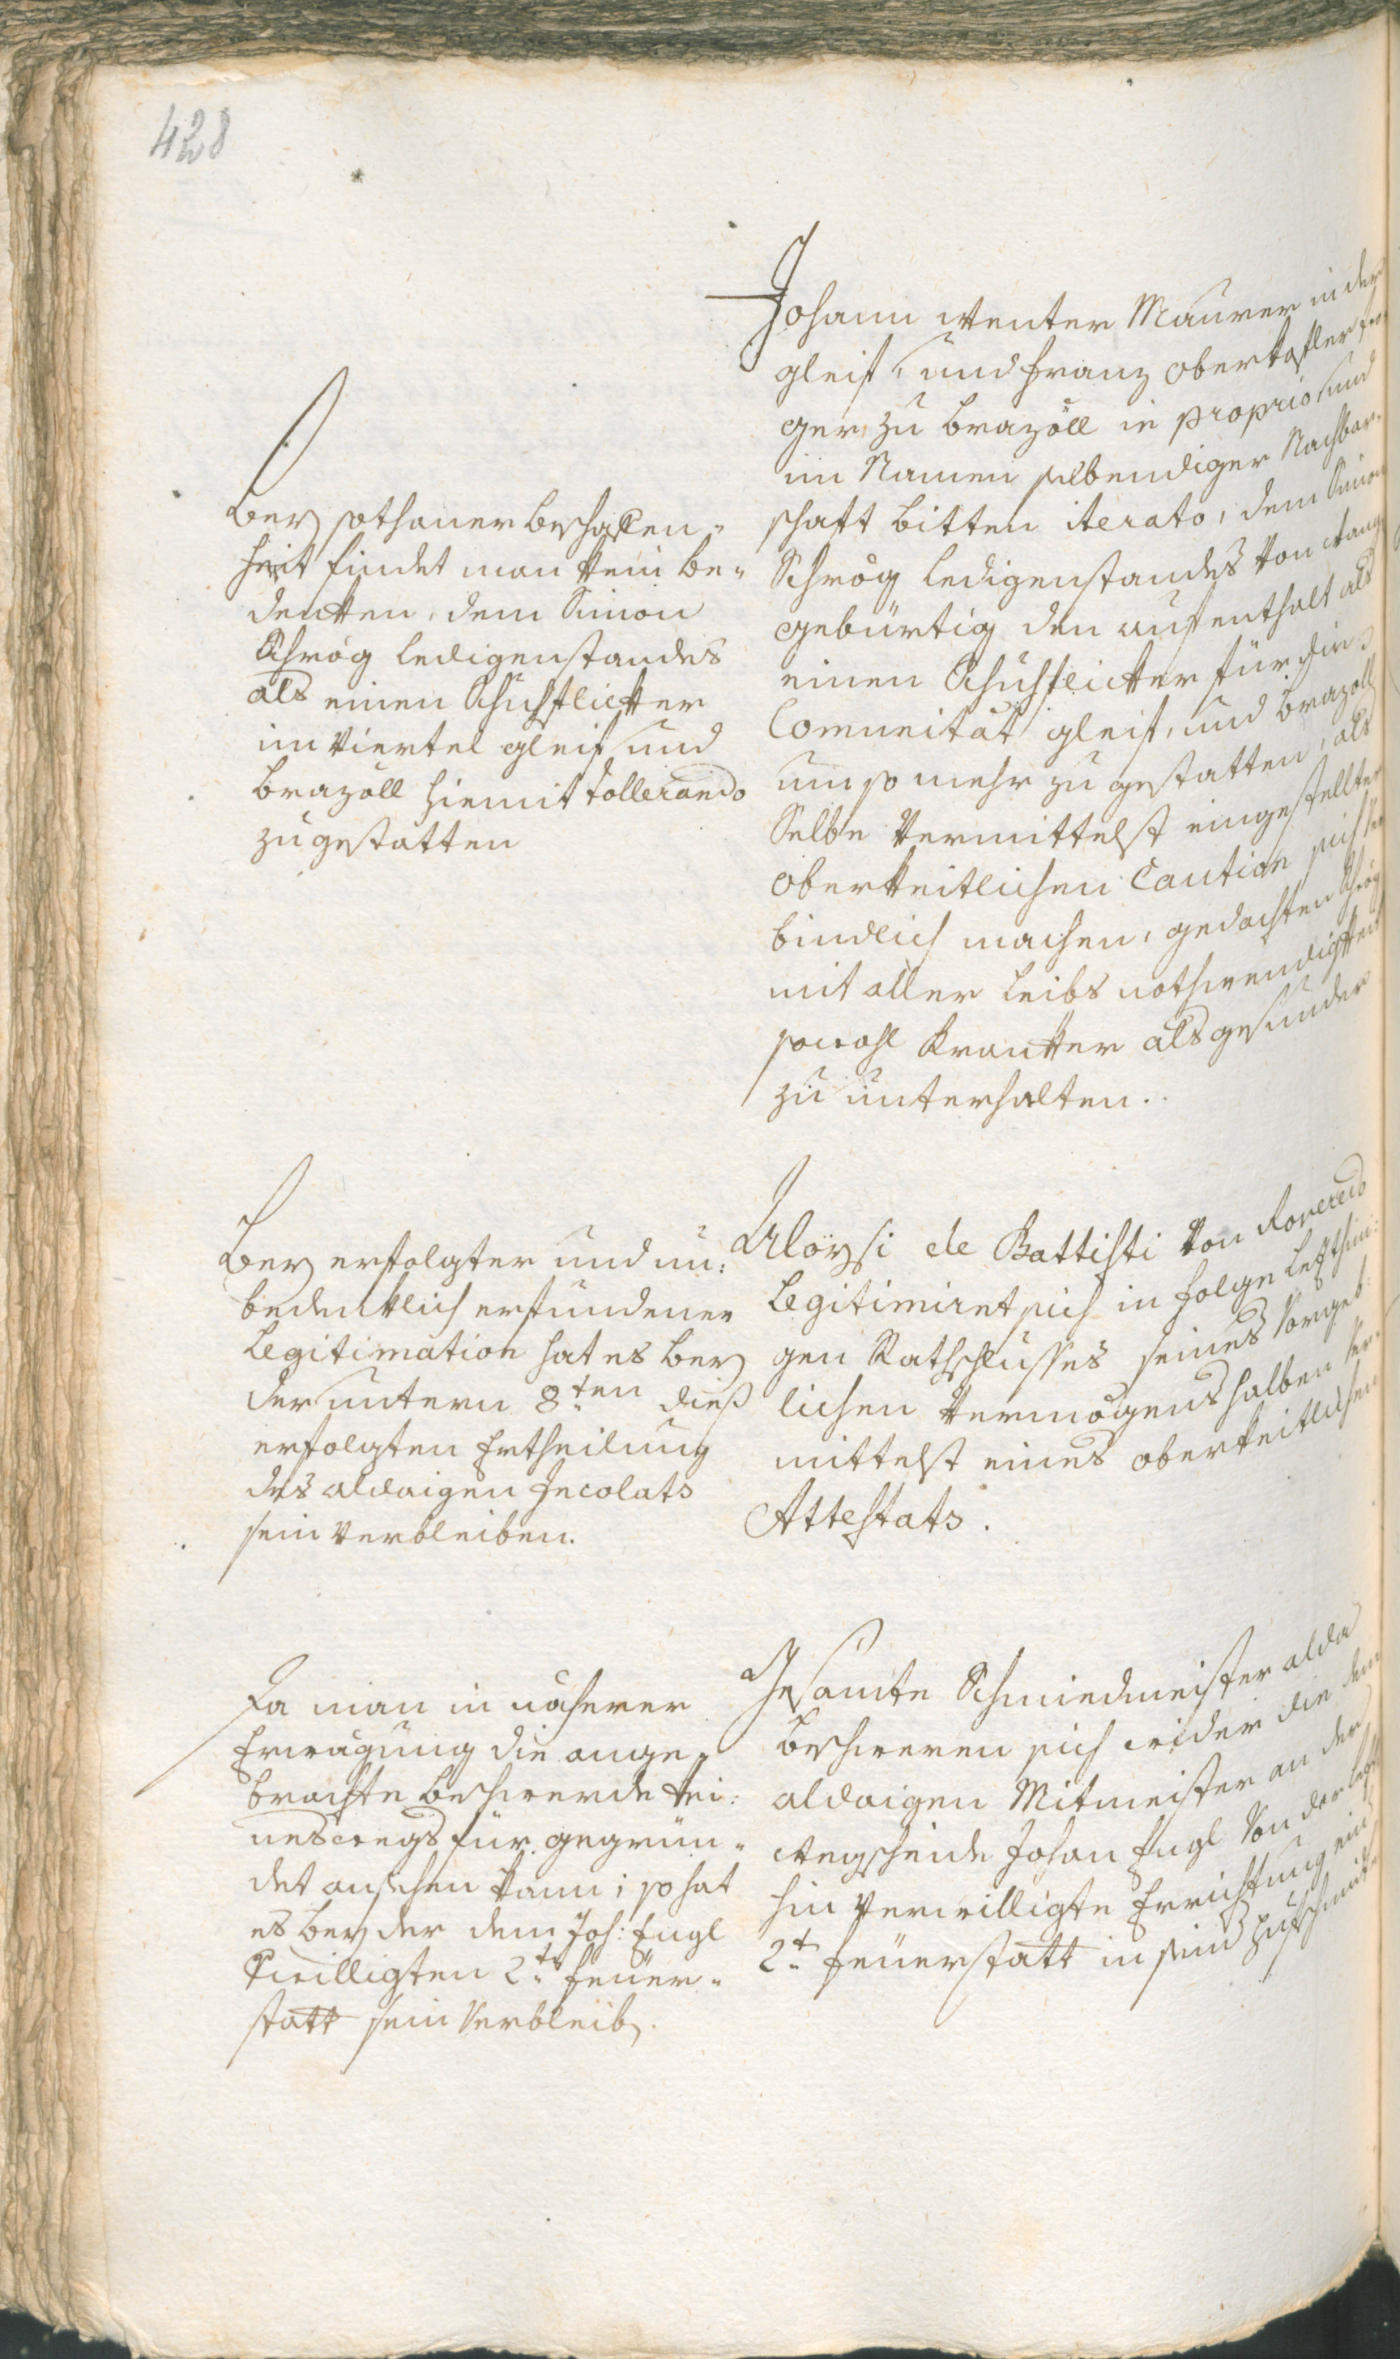 428
Johann Venter Maurer in der
gleif, und Franz Oberkofler
ger zu brazöll in proprio und
im Namen selbendiger Nachbar-
schaft bitten iterato, dem Simon
Schrög ledigenstandes von
gebürtig den aufenthalt als
einen Schuhflicker für die
Comunität gleif, und brazoll
um so mehr zu gestatten, als
Selbe vermittelst eingestellter
oberkeitlichen Caution sich ver
bindlich machen, gedachten Schrög
mit aller Leibs nothwendigkeit
sowohl Kranker als gesunder
zu unterhalten.
Bey sothaner beschaffen-
heit findet man kein be-
denken, dem Simon
Schrög ledigenstandes
als einen Schuhflicker
im Viertel gleif und
brazoll hiemit tollerando
zu gestatten
Aloysi de Battisti von Roveredo
Legitimiret sich in folge letzthin:
gen Rathschlusses seines Vorgeb:
lichen Vermögens halben ver-
mittelst eines oberkeitlichen
Attestats.
Bey erfolgter und un:
bedenklich erfundener
Legitimation hat es bey
der untern 8.ten dieß
erfolgten Ertheilung
des aldaigen Incolats
sein verbleiben.
Gesamte Schmiedmeister alda
beschweren sich wider die dem
aldaigen Mitmeister an der
Wegscheide Johan Engl von der letzt
hin verwilligte Errichtung ein
2.t feüerstatt in sein
Da man in näherer
Erwägung die ange-
brachte beschwerde kei:
neswegs für gegrün-
det ansehen kann; so hat
es bey der dem Joh: Engl
bewilligten 2.t feüer-
statt sein Verbleib.